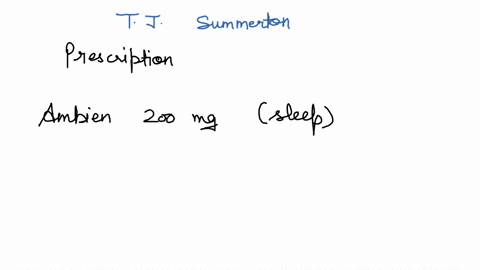 T. J. Summerton
Prescription
Ambien 200 mg (sleep)